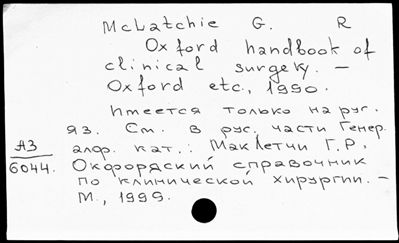 McLatchie G. R
Oxford handbook of
clinical surgery. –
Oxford etc., 1990.
Имеется только на рус.
яз. См. в рус. части Генер.
алф. кат.: МакЛетчи Г.Р.
АЗ
6044.
Оксфордский справочник
по клинической хирургии. –
М., 1999.